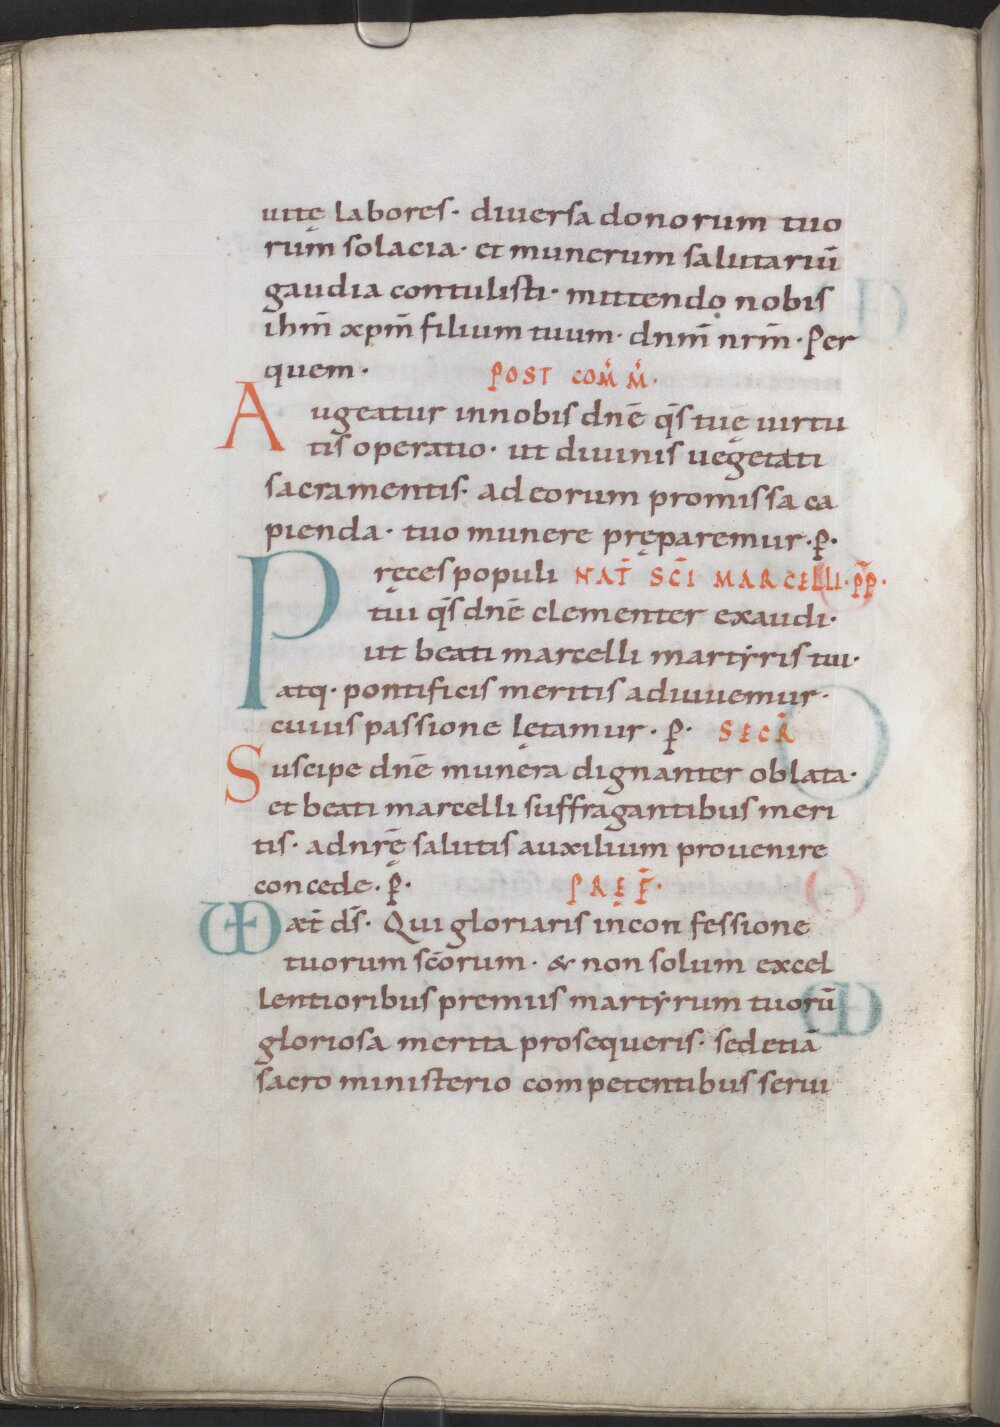 uitę labores· diuersa donorum tuo
rum solacia· et munerum salutariū
gaudia contulisti· mittendo nobis
ihm̄ xpm̄ filium tuum· dnm̄ nrm̄· Per
quem· POST COM̄M̄·
Augeatur in nobis dnē q̄s tuę uirtu
tis operatio· ut diuinis uegetati
sacramentis· ad eorum promissa ca
pienda· tuo munere pręparemur· P̄·
Pręces populi NAT̄ SC̄I MARCELLI· P̄P̄·
tui q̄s dnē clementer exaudi·
ut beati marcelli martẏris tui·
atq· pontificis meritis adiuuemur·
cuius passione lętamur· P̄· SECR̄
Suscipe dnē munera dignanter oblata·
et beati marcelli suffragantibus meri
tis· ad nrę̄ salutis auxilium prouenire
concede· P̄· PREF̄·
VD æt̄ ds̄· Qui gloriaris in con fessione
tuorum sc̄orum· & non solum excel
lentioribus premiis martẏrum tuorū
gloriosa merita prosequeris· sed etiā
sacro ministerio competentibus serui